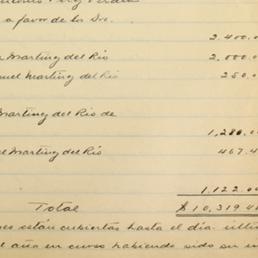 a favor de los Dre.
2.400.0
Marting del Rio 2,000.0
uel Marting del Rio 250.0
Marting del Rio de
1,280.0
el Marting del Rio 467.4
1.122.0
Total $10,319.4
es están cubiertas hasta el día últi
l año en curso habiendo sido su